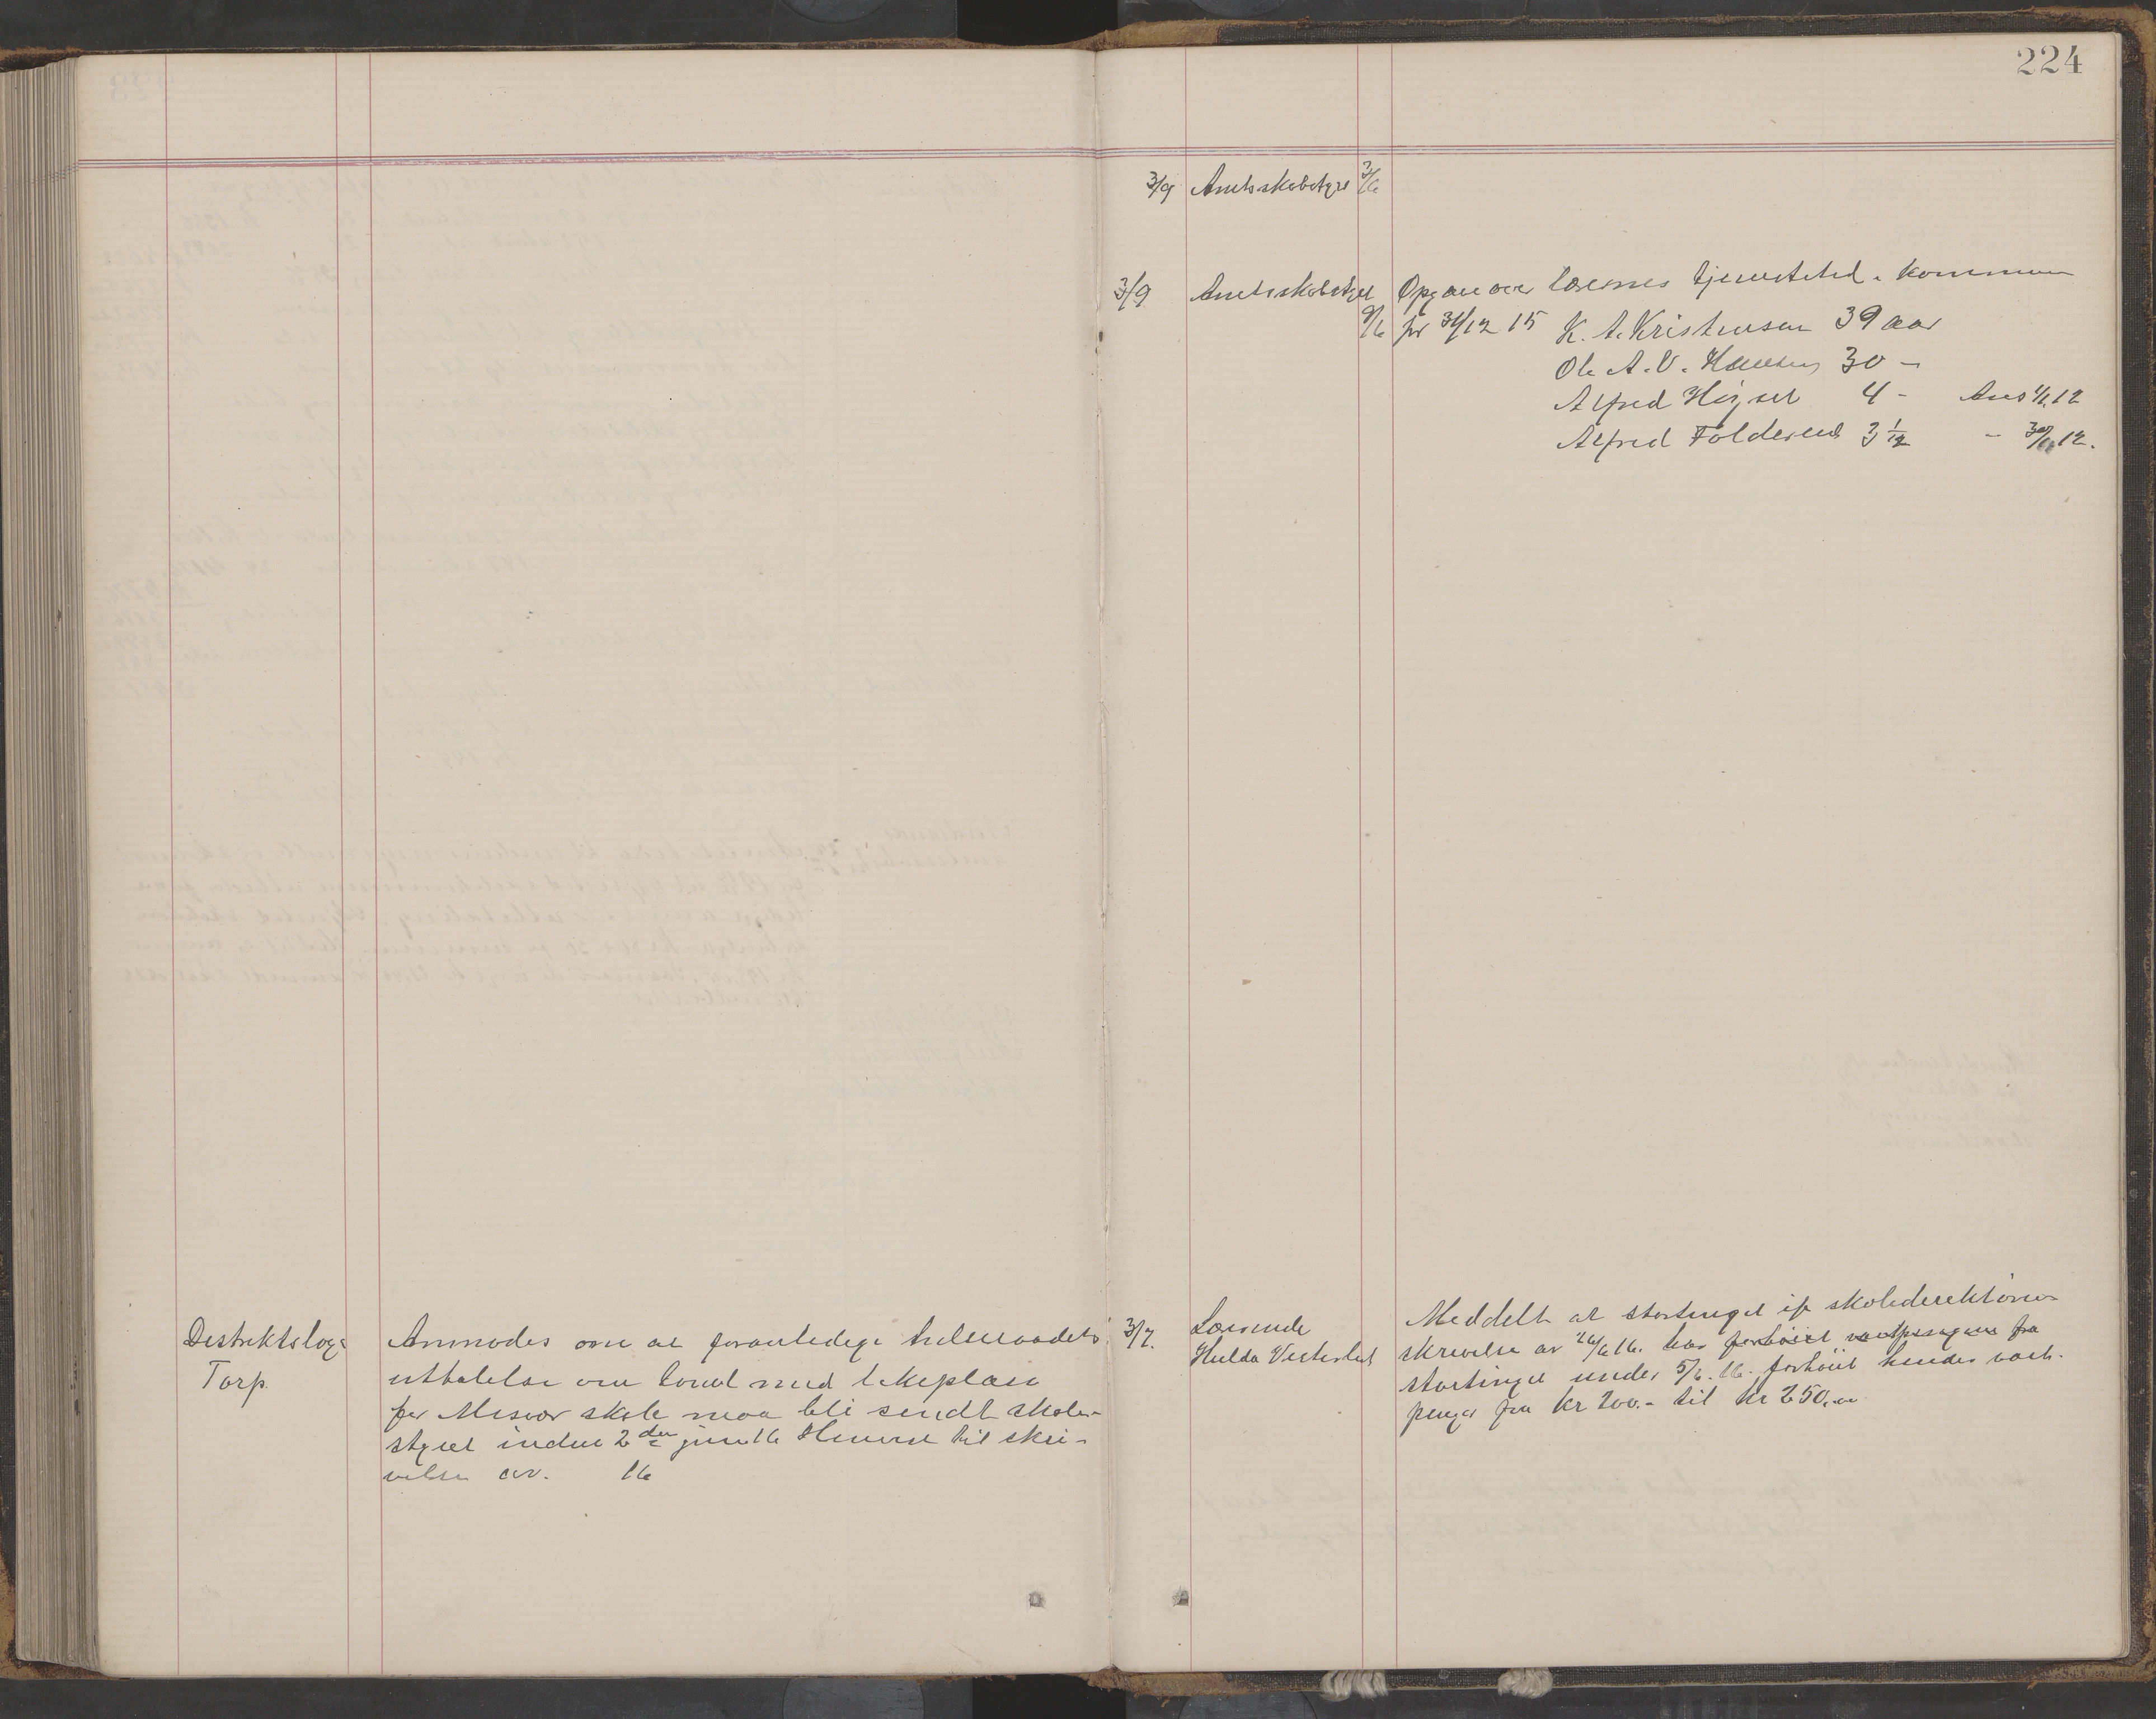 224
Distriktslæge
Torp.
Anmodes om at foranledige helseraadets
uttalelse om tomt med lekeplass
for Misvær skole maa bli sendt skole-
styret inden 2den juni 16 Henvist til skri-
velse av. 16
3/9 Amtsskolestyre 3/6
3/9 Amtsskolestyret Opgave over lærernes tjenestetid i kommunen
9/6 pr 31/12 15 K. A. Kristensen 39 aar
Ole A. V. Hansen 30 -
Alfred 4 - Ans 1/1 12
Alfred Folderend 3 1/12 - 12.
3/7. Lærerinde
Hulda Vesterlid
Meddelt at stortinget if skoledirektørens
skrivelse av 26/6 16. har forhøiet vartpengene fra
stortinget under 5/6. 16. forhøiet hendes vart-
penger fra kr 200.- til kr 250,00